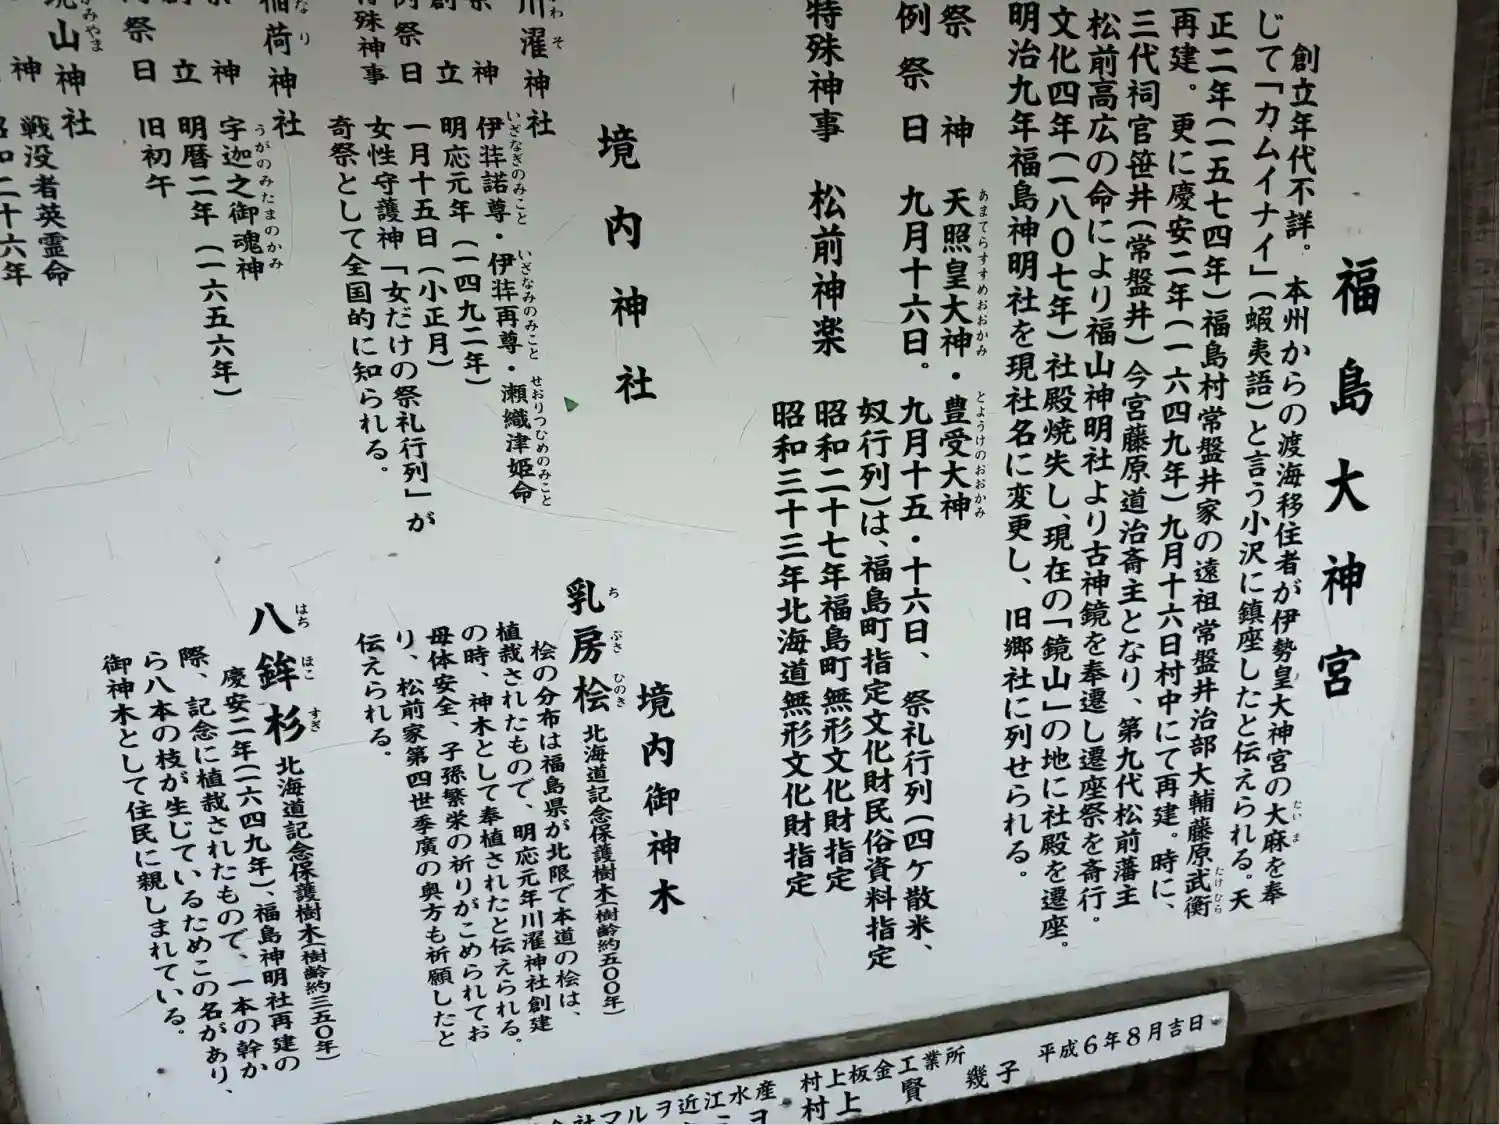 福島大神宮
創立年代不詳。本州からの渡海移住者が伊勢皇大神宮の大麻を奉
じて「カムイナイ」(蝦夷語)と言う小沢に鎮座したと伝えられる。天
正二年(一五七四年)福島村常盤井家の遠祖常盤井治部大輔藤原武衡
再建。更に慶安二年(一六四九年)九月十六日村中にて再建。時に、
三代祠官笹井(常盤井)今宮藤原道治斎主となり、第九代松前藩主
松前高広の命により福山神明社より古神鏡を奉遷し遷座祭を斎行。
文化四年(一八〇七年)社殿焼失し、現在の「鏡山」の地に社殿を遷座。
明治九年福島神明社を現社名に変更し、旧郷社に列せられる。
祭神 天照皇大神・豊受大神
例祭日 九月十六日。九月十五・十六日、祭礼行列(四ケ散米、
奴行列)は、福島町指定文化財民俗資料指定
特殊神事 松前神楽 昭和二十七年福島町無形文化財指定
昭和三十三年北海道無形文化財指定
境内神社
川濯神社
祭神 伊弉諾尊・伊弉再尊・瀬織津姫命
創立 明応元年(一四九二年)
例祭日 一月十五日(小正月)
特殊神事 女性守護神「女だけの祭礼行列」が
奇祭として全国的に知られる。
稲荷神社
祭神 宇迦之御魂神
創立 明暦二年(一六五六年)
例祭日 旧初午
山神社
神 戦没者英霊命
昭和二十六年
境内御神木
乳房桧 北海道記念保護樹木(樹齢約五〇〇年)
桧の分布は福島県が北限で本道の桧は、
植栽されたもので、明応元年川濯神社創建
の時、神木として奉植されたと伝えられる。
母体安全、子孫繁栄の祈りがこめられてお
り、松前家第四世季廣の奥方も祈願したと
伝えられる。
八鉾杉 北海道記念保護樹木(樹齢約三五〇年)
慶安二年(一六四九年)、福島神明社再建の
際、記念に植栽されたもので、一本の幹か
ら八本の枝が生じているためこの名があり、
御神木として住民に親しまれている。
平成6年8月吉日
村上板金工業所
村上 賢
幾子
会社マルヲ近江水産